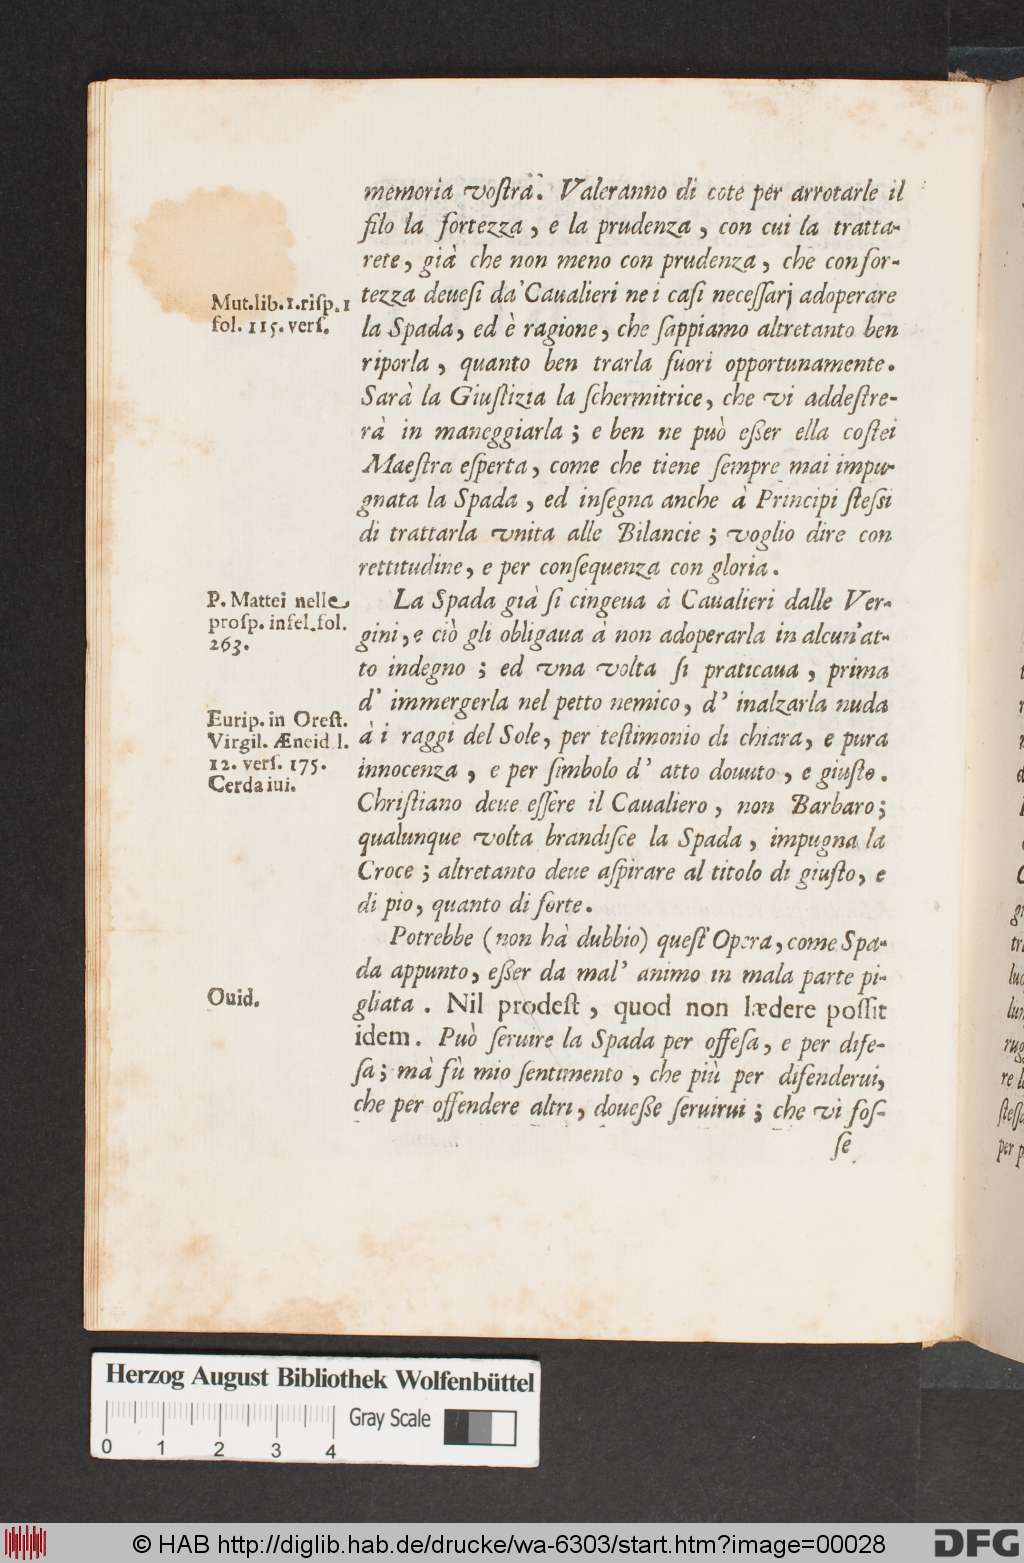 memoria voſtra. Valeranno di cote per arrotarle il
filo la fortezza, e la prudenza, con cui la tratta-
rete, già che non meno con prudenza, che con for-
tezza deueſi da' Caualieri ne i caſi neceſſarj adoperare
la Spada, ed è ragione, che ſappiamo altretanto ben
riporla, quanto ben trarla fuori opportunamente.
Sarà la Giuſtizia la ſchermitrice, che vi addeſtre-
rà in maneggiarla; e ben ne può eßer ella coſtei
Maeſtra eſperta, come che tiene ſempre mai impu-
gnata la Spada, ed inſegna anche à Principi ſteſsi
di trattarla vnita alle Bilancie; voglio dire con
rettitudine, e per conſequenza con gloria.
La Spada già ſi cingeua à Caualieri dalle Ver-
gini, e ciò gli obligaua à non adoperarla in alcun' at-
to indegno; ed vna volta ſi praticaua, prima
d' immergerla nel petto nemico, d' inalzarla nuda
à i raggi del Sole, per teſtimonio di chiara, e pura
innocenza, e per ſimbolo d' atto douuto, e giuſto.
Chriſtiano deue eſſere il Caualiero, non Barbaro;
qualunque volta brandiſce la Spada, impugna la
Croce; altretanto deue aſpirare al titolo di giuſto, e
di pio, quanto di forte.
Potrebbe (non hà dubbio) queſt' Opera, come Spa-
da appunto, eßer da mal' animo in mala parte pi-
gliata. Nil prodeſt, quod non lædere poſſit
idem. Può ſeruire la Spada per offeſa, e per dife-
ſa; mà fù mio ſentimento, che più per difenderui,
che per offendere altri, doueße ſeruirui; che vi foſ-
ſe
Mut. lib. 1. riſp. 1
fol. 115. verſ.
P. Mattei nelle
proſp. infel. fol.
263.
Eurip. in Oreſt.
Virgil. Æneid. l.
12. verſ. 175.
Cerda iui.
Ouid.
Herzog August Bibliothek Wolfenbüttel
Gray Scale
0 1 2 3 4
© HAB http://diglib.hab.de/drucke/wa-6303/start.htm?image=00028
DFG